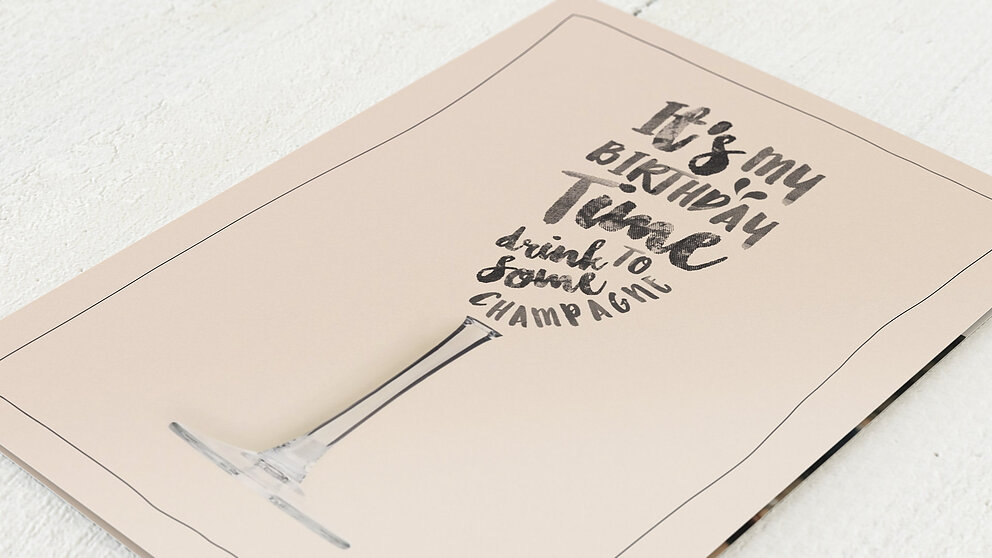 It's my
BIRTHDAY
Time
drink TO
some
CHAMPAGNE